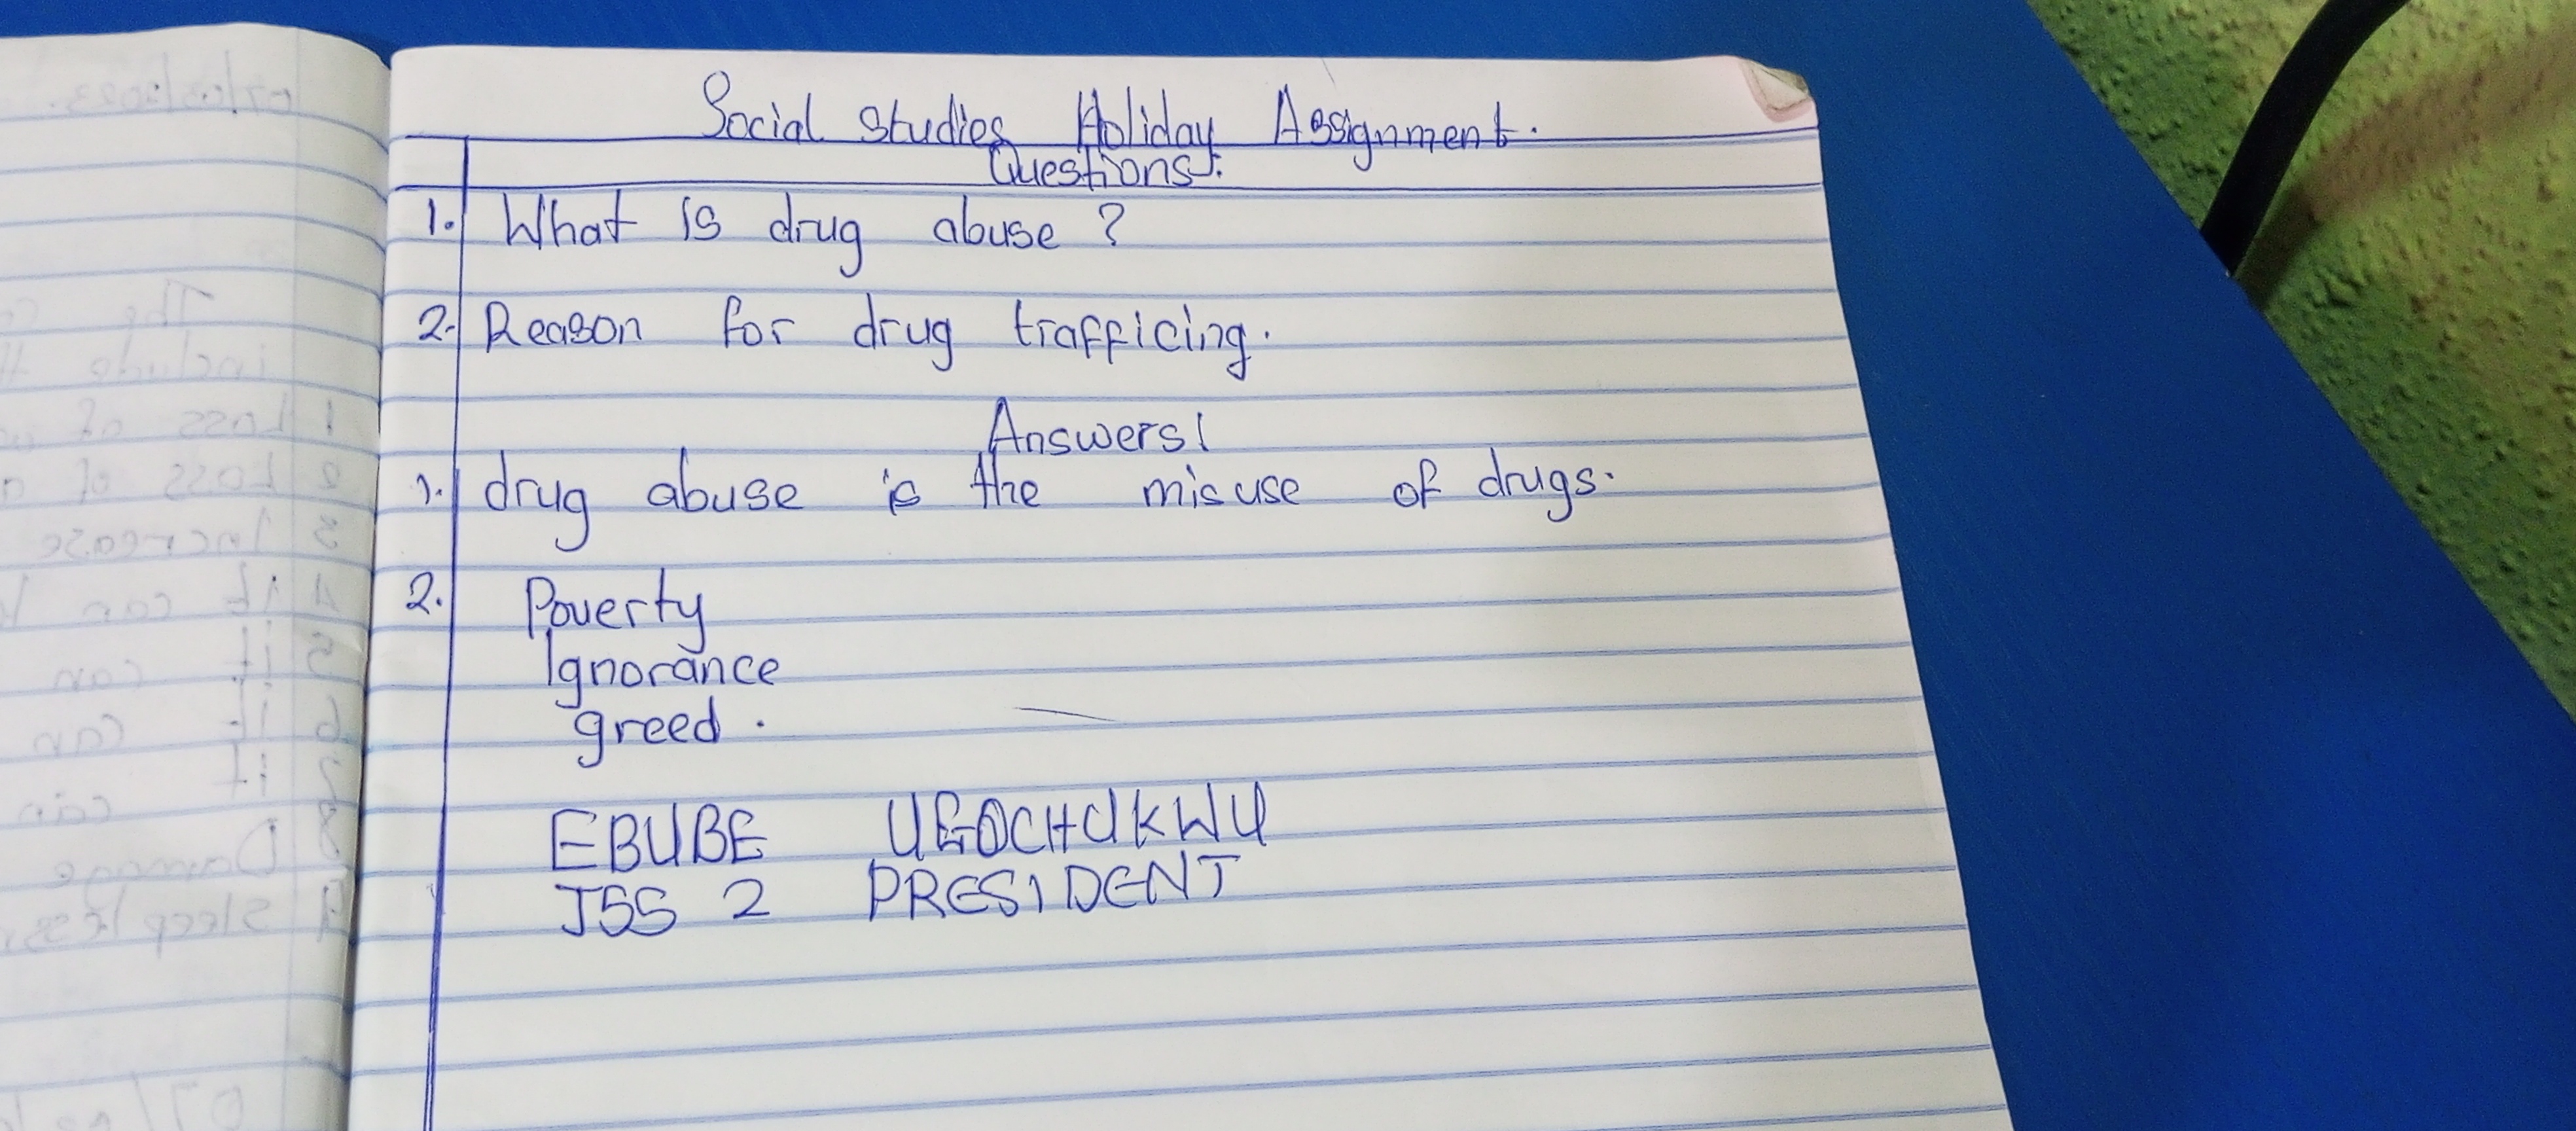 Social Studies Holiday Assignment.
Questions:
1. What is drug abuse ?
2. Reason for drug trafficing.
Answers!
1. drug abuse is the misuse of drugs.
2. Poverty
Ignorance
greed.
EBUBE UGOCHUKWU
JSS 2 PRESIDENT